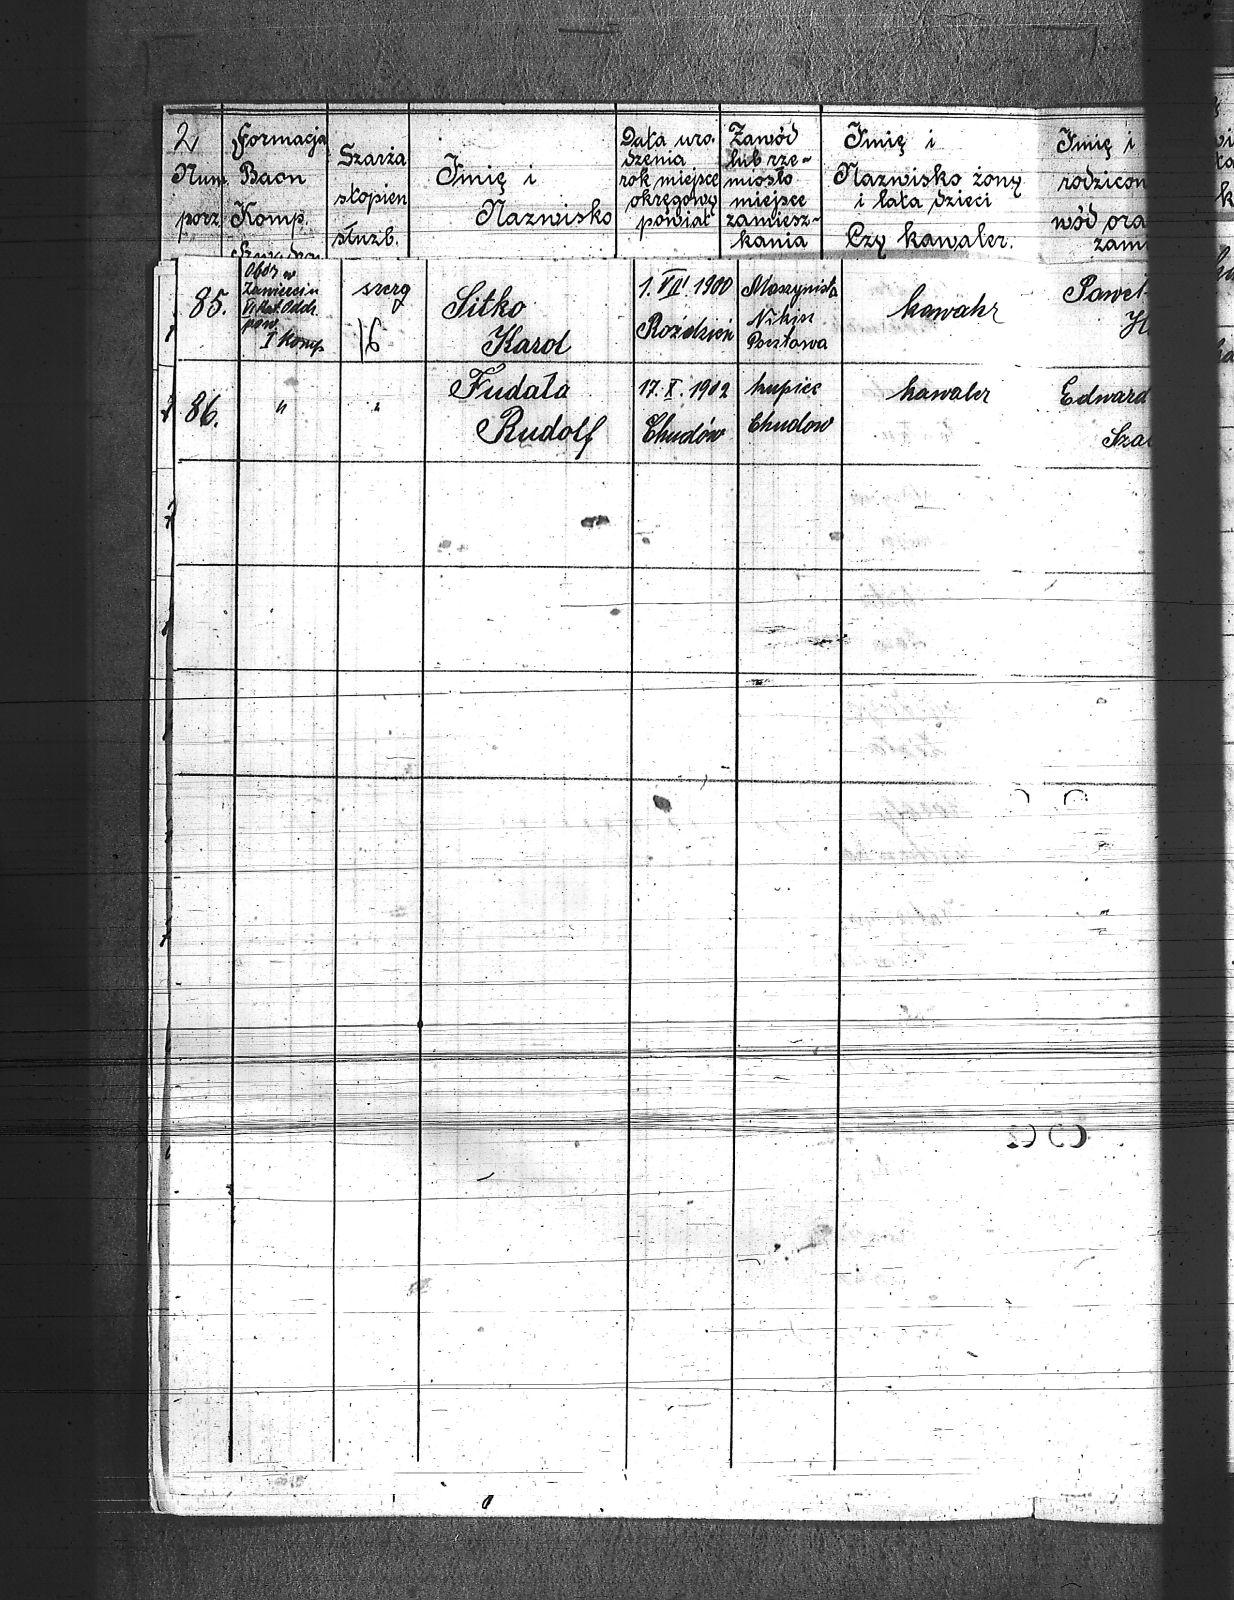 2
Num.
porz.
Formacja
Baon
Komp.
Szarża
stopień
służb.
Imię i
Nazwisko
Data uro-
dzenia
rok miejsce
okręgowy
powiat
Zawód
lub rze-
miosło
miejsce
zamiesz-
kania
Imię i
Nazwisko żony
i lata dzieci
Czy kawaler.
Imię i
rodzicón
wód ora
zami
85.
Obóz w
Zawierciu
Oddz.
pow.
I Komp
szereg
16
Sitko
Karol
1. VIII 1900
Roździeń
Maszynista
Nikisz
Pocztowa
kawaler
Paweł
86.
"
"
Fudała
Rudolf
17. X. 1902
Chudów
kupiec
Chudow
kawaler
Edward
Sza